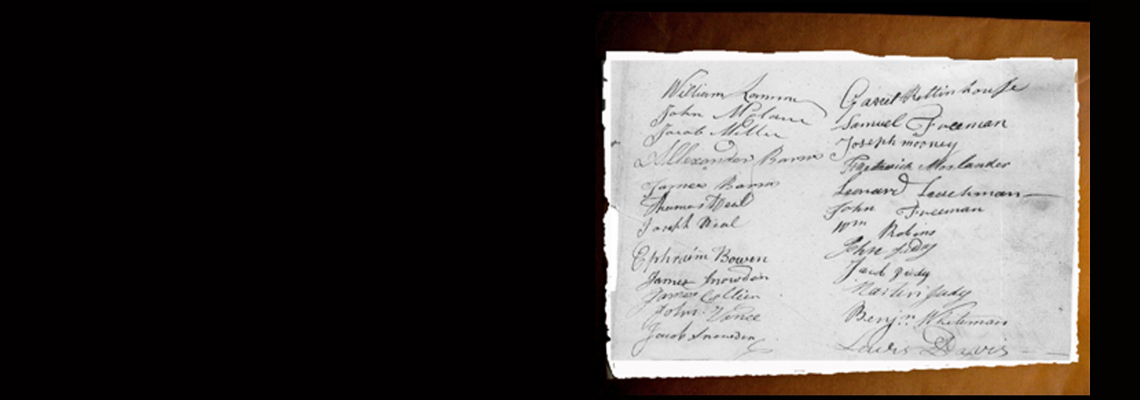 William Lamme
John McLane
Jacob Miller
Allexander Barns
James Barns
Thomas Neal
Joseph Neal
Ephraim Bowen
James Snowden
James Collier
John Vance
Jacob Snowden
Garret Rittinhouse
Samuel Freeman
Joseph mooney
Morlander
Leonard
John Freeman
Wm Robins
John Judy
Jacob Judy
Martin Judy
Benjn. Whiteman
Lewis Davis